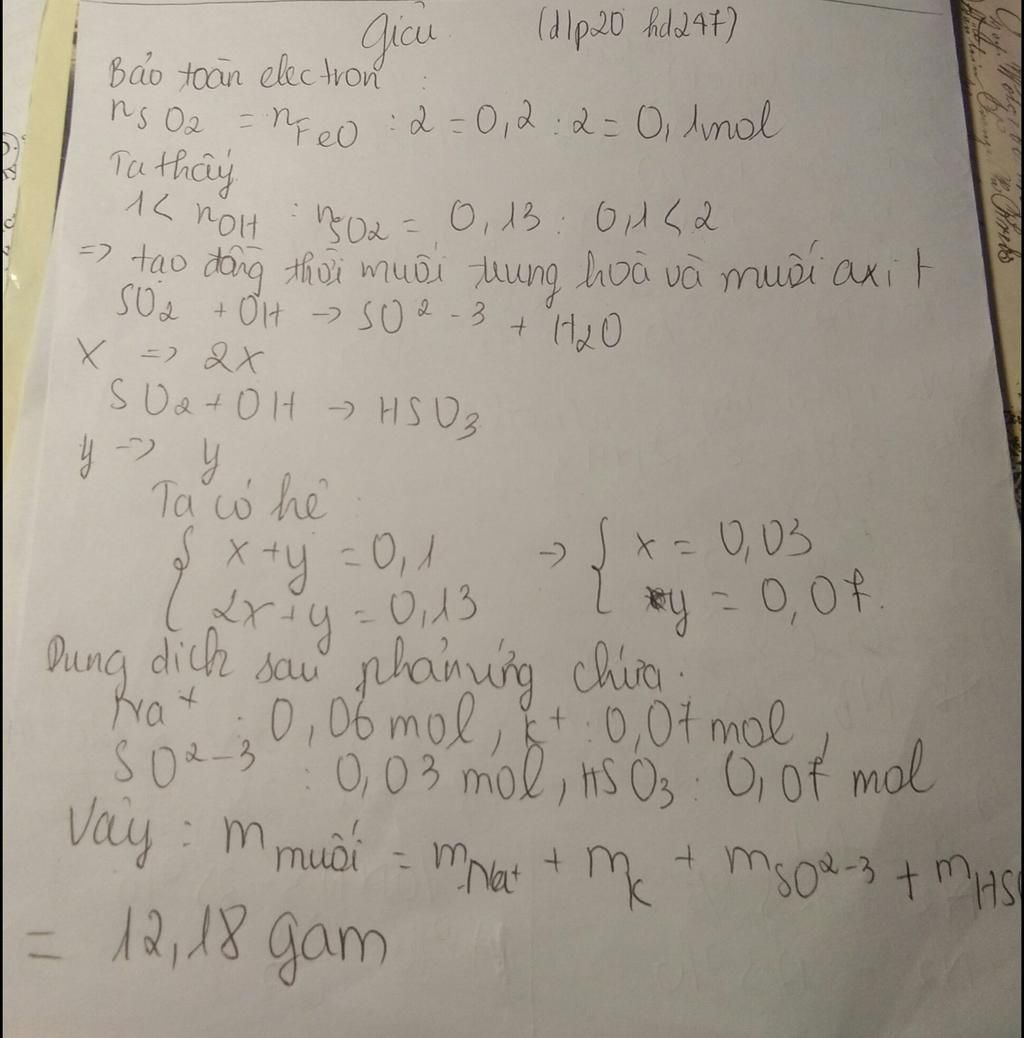 Giải (dlp20 hd247)
Bảo toàn electron :
nSO2 = nFeO : 2 = 0,2 : 2 = 0,1mol
Ta thấy
1< nOH : nSO2 = 0,13 : 0,1 < 2
=> tạo đồng thời muối trung hoà và muối axit
SO2 + OH -> SO2-3 + H2O
X => 2X
SO2 + OH -> HSO3
y -> y
Ta có hê
{ x+y = 0,1 -> { x = 0,03
2x+y = 0,13 y = 0,07.
Dung dich sau phản ứng chứa.
Na+ : 0,06 mol, k+ : 0,07 mol,
SO2-3 : 0,03 mol, HSO3 : 0,07 mol
Vậy : m muối = mNa+ + mk + mSO2-3 + mHS
= 12,18 gam